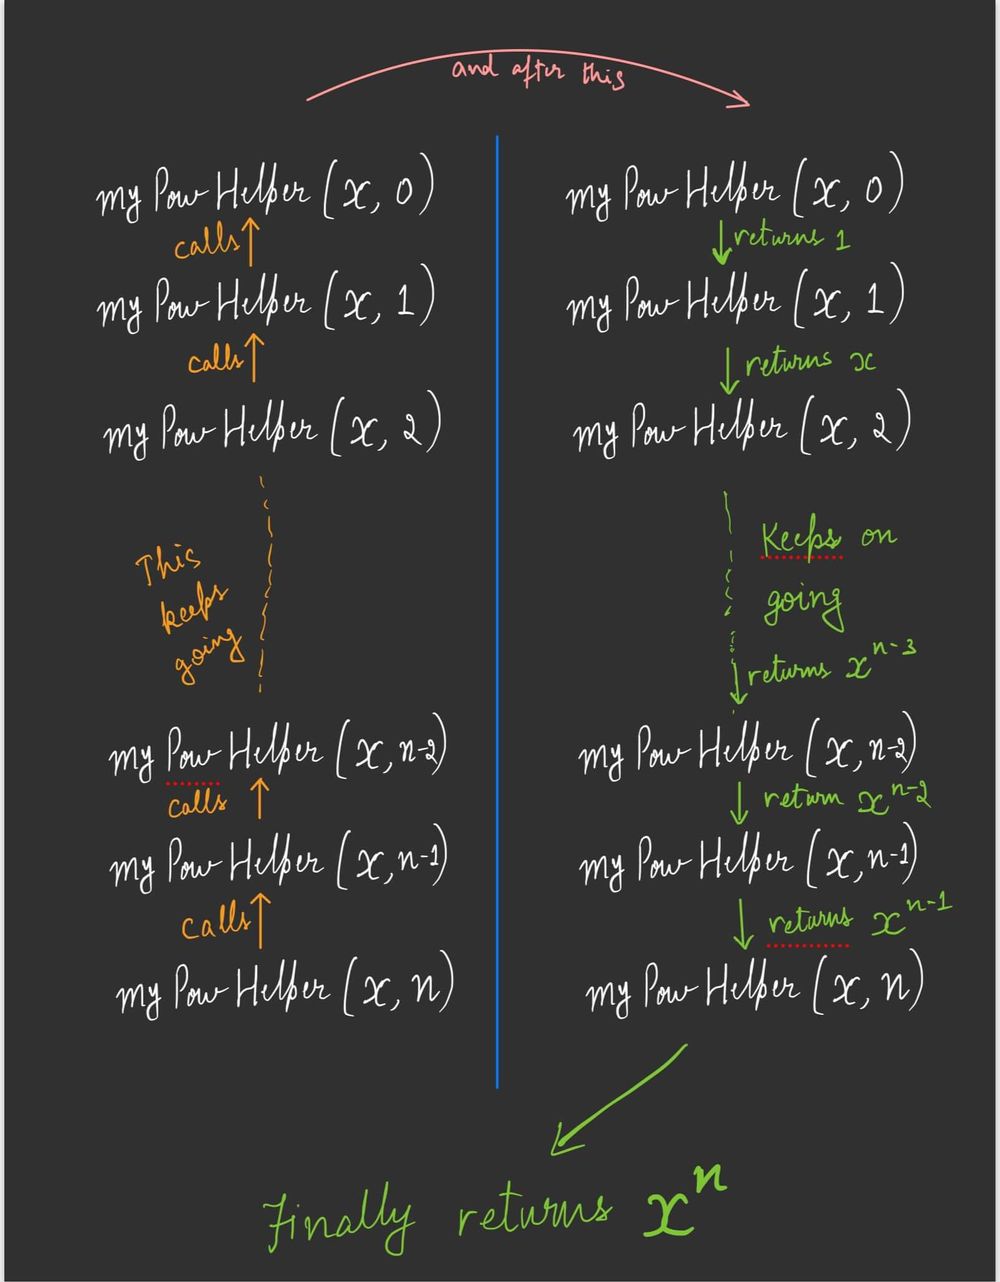 and after this
my Pow Helper (x, 0)
calls
my Pow Helper (x, 1)
calls
my Pow Helper (x, 2)
This
keeps
going
my Pow Helper (x, n-2)
calls
my Pow Helper (x, n-1)
calls
my Pow Helper (x, n)
my Pow Helper (x, 0)
returns 1
my Pow Helper (x, 1)
returns x
my Pow Helper (x, 2)
Keeps on
going
returns xⁿ⁻³
my Pow Helper (x, n-2)
return xⁿ⁻²
my Pow Helper (x, n-1)
returns xⁿ⁻¹
my Pow Helper (x, n)
Finally returns xⁿ